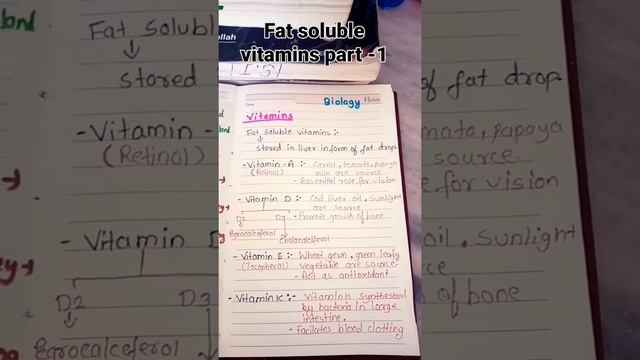 Fat soluble
vitamins part -1
Biology Notes
Vitamins
Fat soluble vitamins :-
stored in liver in form of fat drop
- Vitamin - A :- Carrot, tomato, papaya
(Retinol) milk are source
- Essential role for vision
- Vitamin D :- Cod liver oil, sunlight
are source
D2 D3 - Promote growth of bone
Egrocalceferol Cholacalciferol
- Vitamin E :- Wheat germ, green leafy
(Tocopherol) vegetable are source.
- Act as antioxidant
- Vitamin K :- Vitamin k synthesised
by bacteria in large
intestine.
- Facilates blood clotting
Fat solubl
stored
- Vitamin -
(Retinol)
- Vitamin
D2 D3
Egrocalceferol
of fat drop
mato, papaya
source.
e for vision
oil, sunlight
ce
of bone